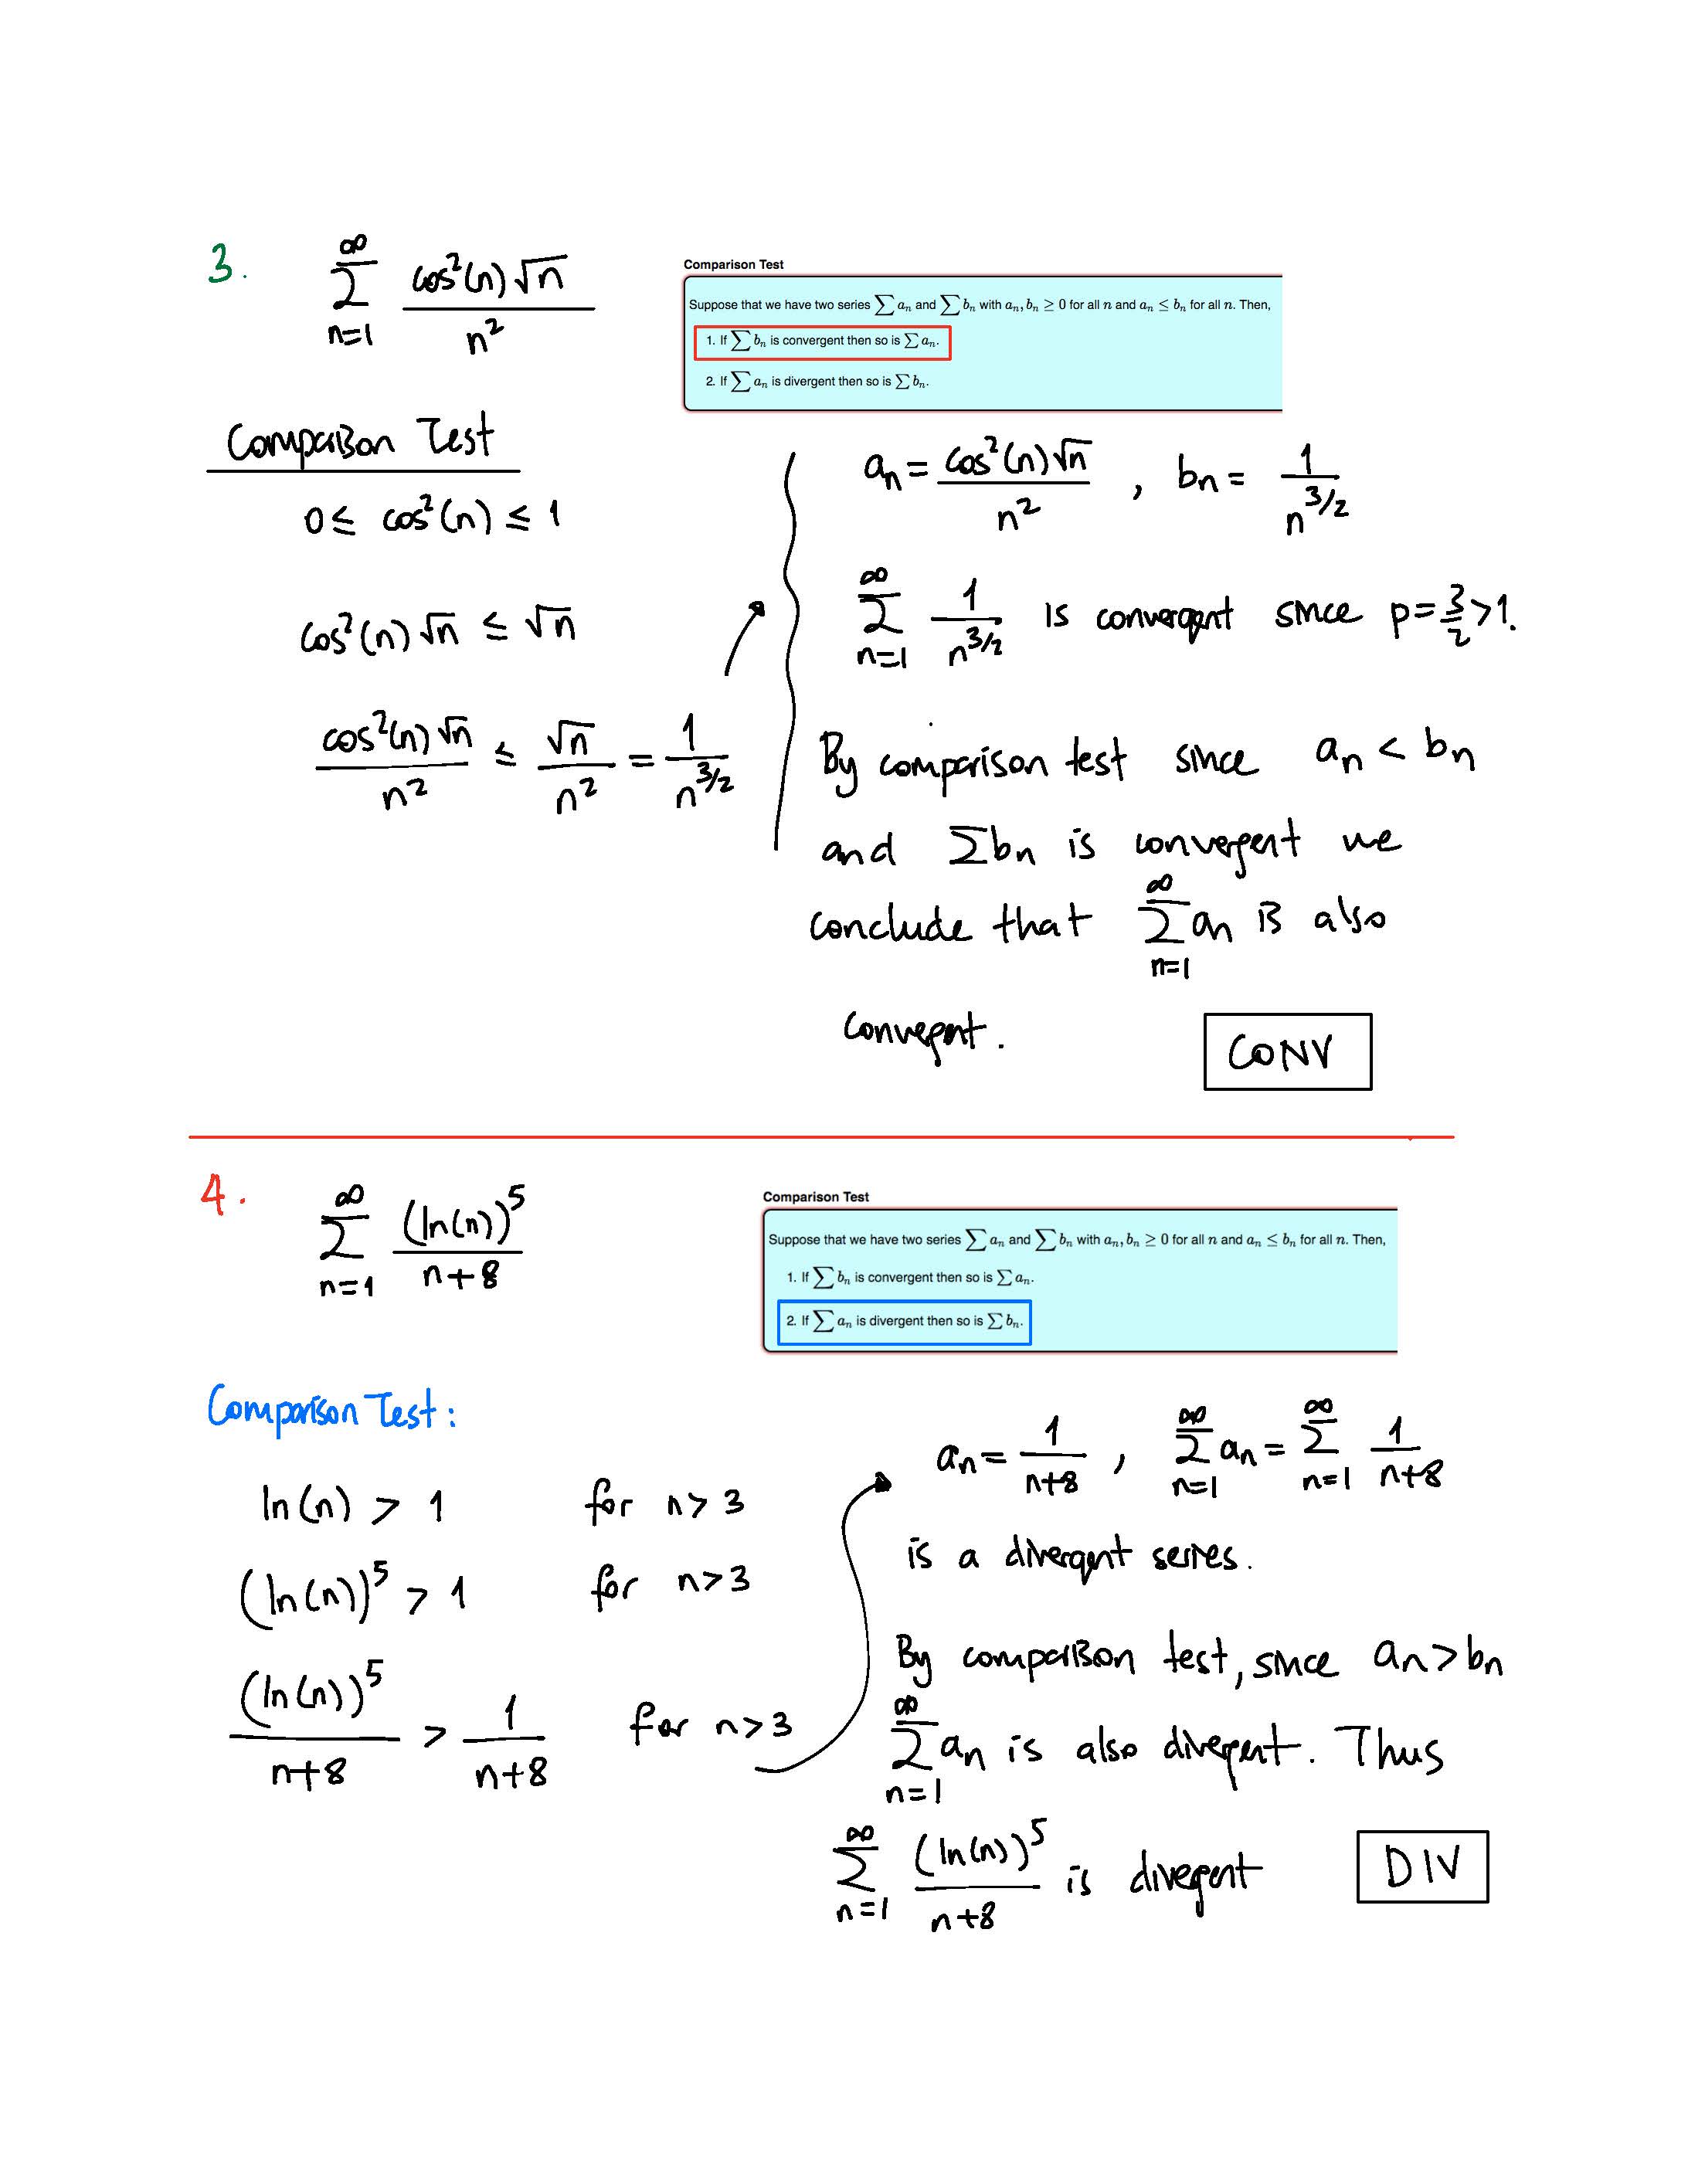 3. ∑_{n=1}^{∞} cos²(n)√n / n²
Comparison Test
Suppose that we have two series ∑ aₙ and ∑ bₙ with aₙ, bₙ ≥ 0 for all n and aₙ ≤ bₙ for all n. Then,
1. If ∑ bₙ is convergent then so is ∑ aₙ.
2. If ∑ aₙ is divergent then so is ∑ bₙ.
Comparison Test
0 ≤ cos²(n) ≤ 1
cos²(n)√n ≤ √n
cos²(n)√n / n² ≤ √n / n² = 1 / n^{3/2}
aₙ = cos²(n)√n / n² , bₙ = 1 / n^{3/2}
∑_{n=1}^{∞} 1 / n^{3/2} is convergent since p = 3/2 > 1.
By comparison test since aₙ < bₙ
and ∑bₙ is convergent we
conclude that ∑_{n=1}^{∞} aₙ is also
convergent.
CONV
4. ∑_{n=1}^{∞} (ln(n))⁵ / n+8
Comparison Test
Suppose that we have two series ∑ aₙ and ∑ bₙ with aₙ, bₙ ≥ 0 for all n and aₙ ≤ bₙ for all n. Then,
1. If ∑ bₙ is convergent then so is ∑ aₙ.
2. If ∑ aₙ is divergent then so is ∑ bₙ.
Comparison Test:
ln(n) > 1 for n > 3
(ln(n))⁵ > 1 for n > 3
(ln(n))⁵ / n+8 > 1 / n+8 for n > 3
aₙ = 1 / n+8 , ∑_{n=1}^{∞} aₙ = ∑_{n=1}^{∞} 1 / n+8
is a divergent series.
By comparison test, since aₙ > bₙ
∑_{n=1}^{∞} aₙ is also divergent. Thus
∑_{n=1}^{∞} (ln(n))⁵ / n+8 is divergent
DIV